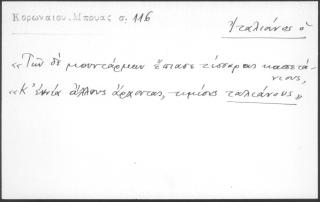 Κορωναιου. Μπουας σ. 116
Ἰταλιάνος ὁ
«Τῶν δὲ μουντάρμων ἔπιασε τέσσερας καπετά-
νιους,
«Κ' ἐννιά ἄλλους ἄρχοντας, τιμίους ταλιάνους»